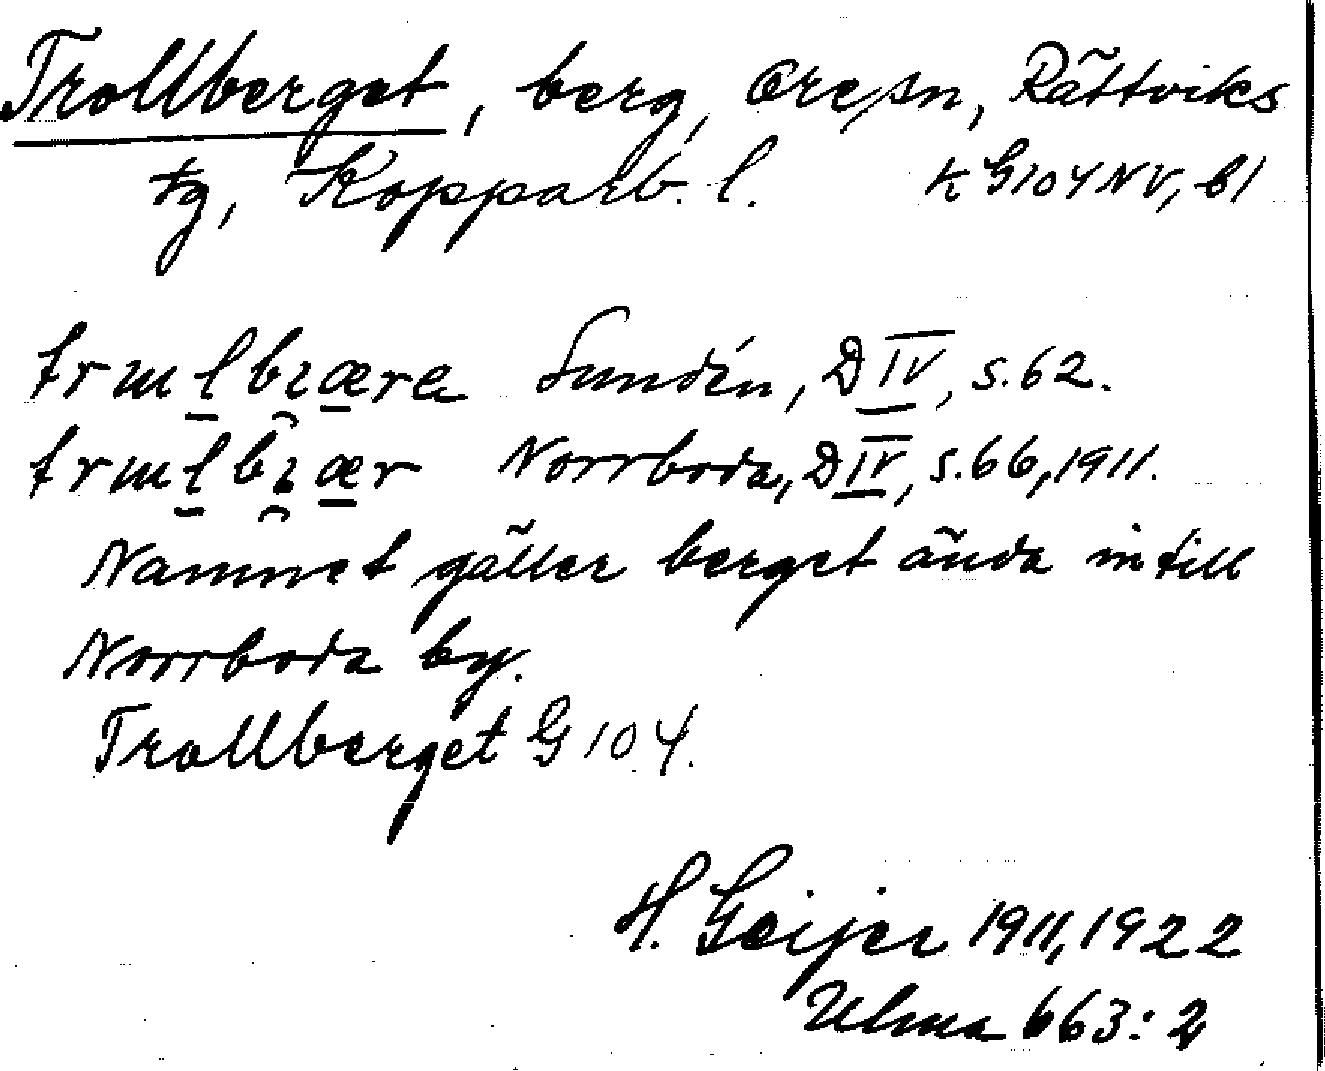 Trollberget, berg, Ore sn, Rättviks
tg, Kopparb. l. k G104NV, b1
Sundén, D IV, s. 62.
Norrboda, D IV, s. 66, 1911.
Namnet gäller berget ända in till
Norrboda by.
Trollberget G 104.
H. Geijer 1911, 1922
Ulma 663:2